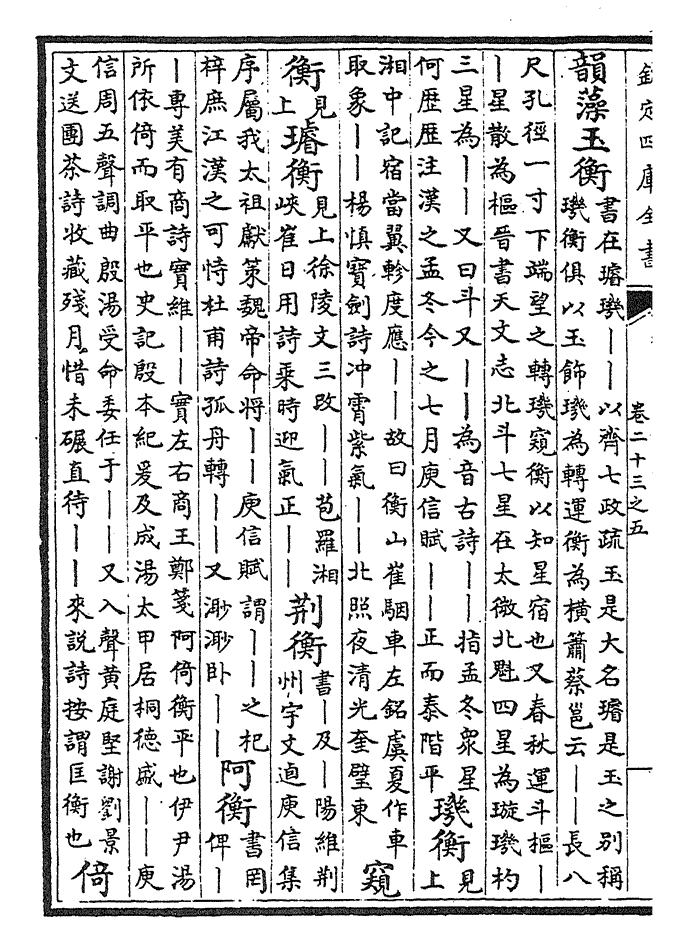 欽定四庫全書
卷二十三之五
韻藻玉衡
書在璿璣——以齊七政疏玉是大名璿是玉之别稱
璣衡俱以玉飾璣為轉運衡為横簫蔡邕云——長八
尺孔徑一寸下端望之轉璣窺衡以知星宿也又春秋運斗樞—
—星散為樞晉書天文志北斗七星在太微北魁四星為璇璣杓
三星為——又曰斗又——為音古詩——指孟冬衆星
何歴歴注漢之孟冬今之七月庾信賦——正而泰階平
璣衡
見
上
湘中記宿當翼軫度應——故曰衡山崔駰車左銘虞夏作車
取象——楊慎寶劍詩冲霄紫氣——北照夜清光奎璧東
窺
衡
見
上
璿衡
見上徐陵文三改——苞羅湘
峽崔日用詩乗時迎氣正——
荆衡
書—及—陽維荆
州宇文逌庾信集
序屬我太祖獻策魏帝命將——庾信賦謂——之杞
梓庶江漢之可恃杜甫詩孤舟轉——又渺渺卧——
阿衡
書罔
俾—
—專美有商詩實維——實左右商王鄭箋阿倚衡平也伊尹湯
所依倚而取平也史記殷本紀爰及成湯太甲居桐德盛——庾
信周五聲調曲殷湯受命委任于——又入聲黄庭堅謝劉景
文送團茶詩收藏殘月惜未碾直待——來説詩按謂匡衡也
倚